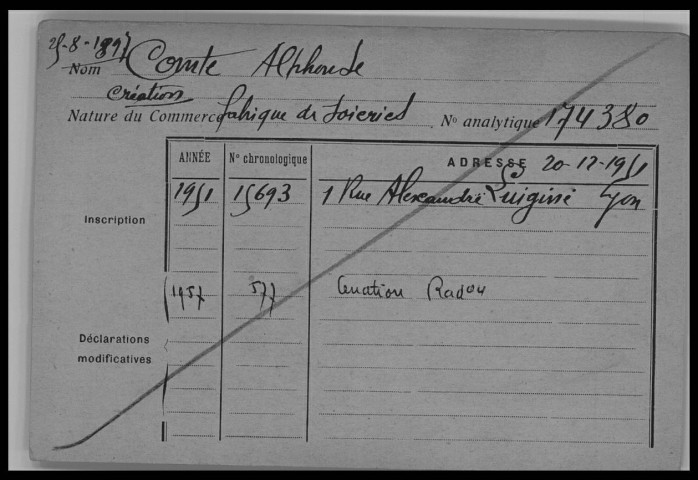 25-8-1897
Nom Comte Alphonse
Créations
Nature du Commerce fabrique de soieries No analytique 174380
ANNÉE No chronologique ADRESSE 20-12-1951
Inscription 1951 15693 1 Rue Alexandre Luigini Lyon
1957 577 Cessation Radou
Déclarations
modificatives